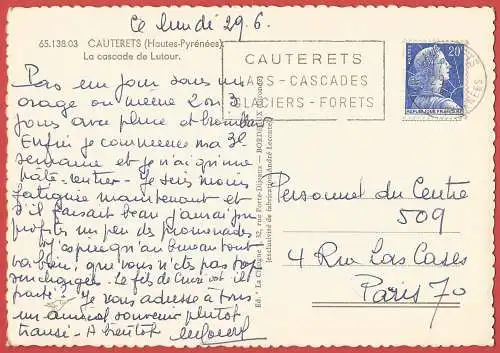 Ce lundi 29.6.
65.138.03 CAUTERETS (Hautes-Pyrénées)
La cascade de Lutour.
Pas un jour sans un
orage ou même 2 ou 3
jours avec pluie et brouillard
Enfin je commence ma 3e
semaine et je n'ai
Je suis moins
fatiguée maintenant et
s'il faisait beau j'aimerais
profiter un peu des promenades
J'espère qu'au bureau tout
va bien, que vous n'êtes pas trop
surchargés. Le fils de est-il
parti? Je vous adresse à tous
un amical souvenir plutôt
transi - A bientôt
Ed. " La Cigogne " 32, rue Porte-Dijeaux — BORDEAUX
(exclusivité de fabrication André Leconte)
CAUTERETS
LACS - CASCADES
GLACIERS - FORETS
20F
REPUBLIQUE FRANÇAISE
Personnel du Centre
509
4 Rue Las Cases
Paris 7o